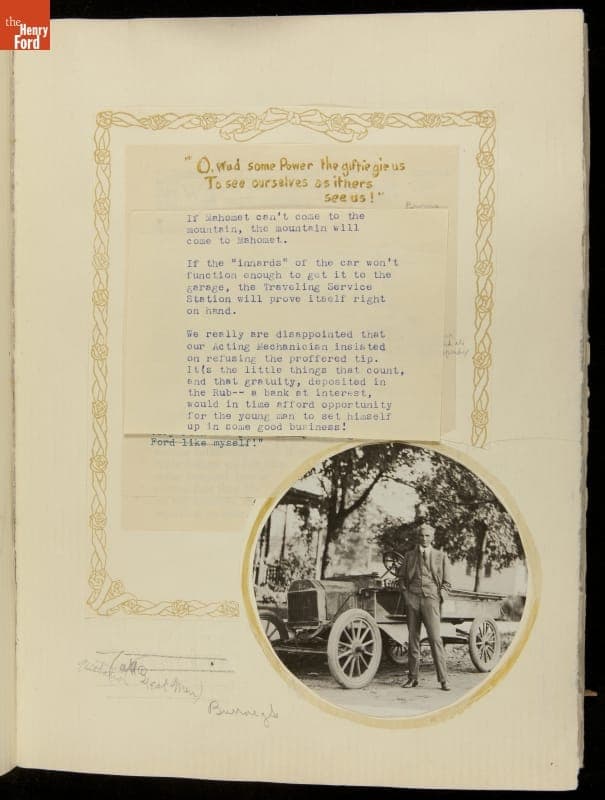 the
Henry
Ford
"O, Wad some Power the giftie gie us
To see ourselves as ithers
see us!"
If Mahomet can't come to the
mountain, the mountain will
come to Mahomet.
If the "innards" of the car won't
function enough to get it to the
garage, the Traveling Service
Station will prove itself right
on hand.
We really are disappointed that
our Acting Mechanician insisted
on refusing the proffered tip.
It's the little things that count,
and that gratuity, deposited in
the Rub-- a bank at interest,
would in time afford opportunity
for the young man to set himself
up in some good business!
Ford like myself!"
Burroughs